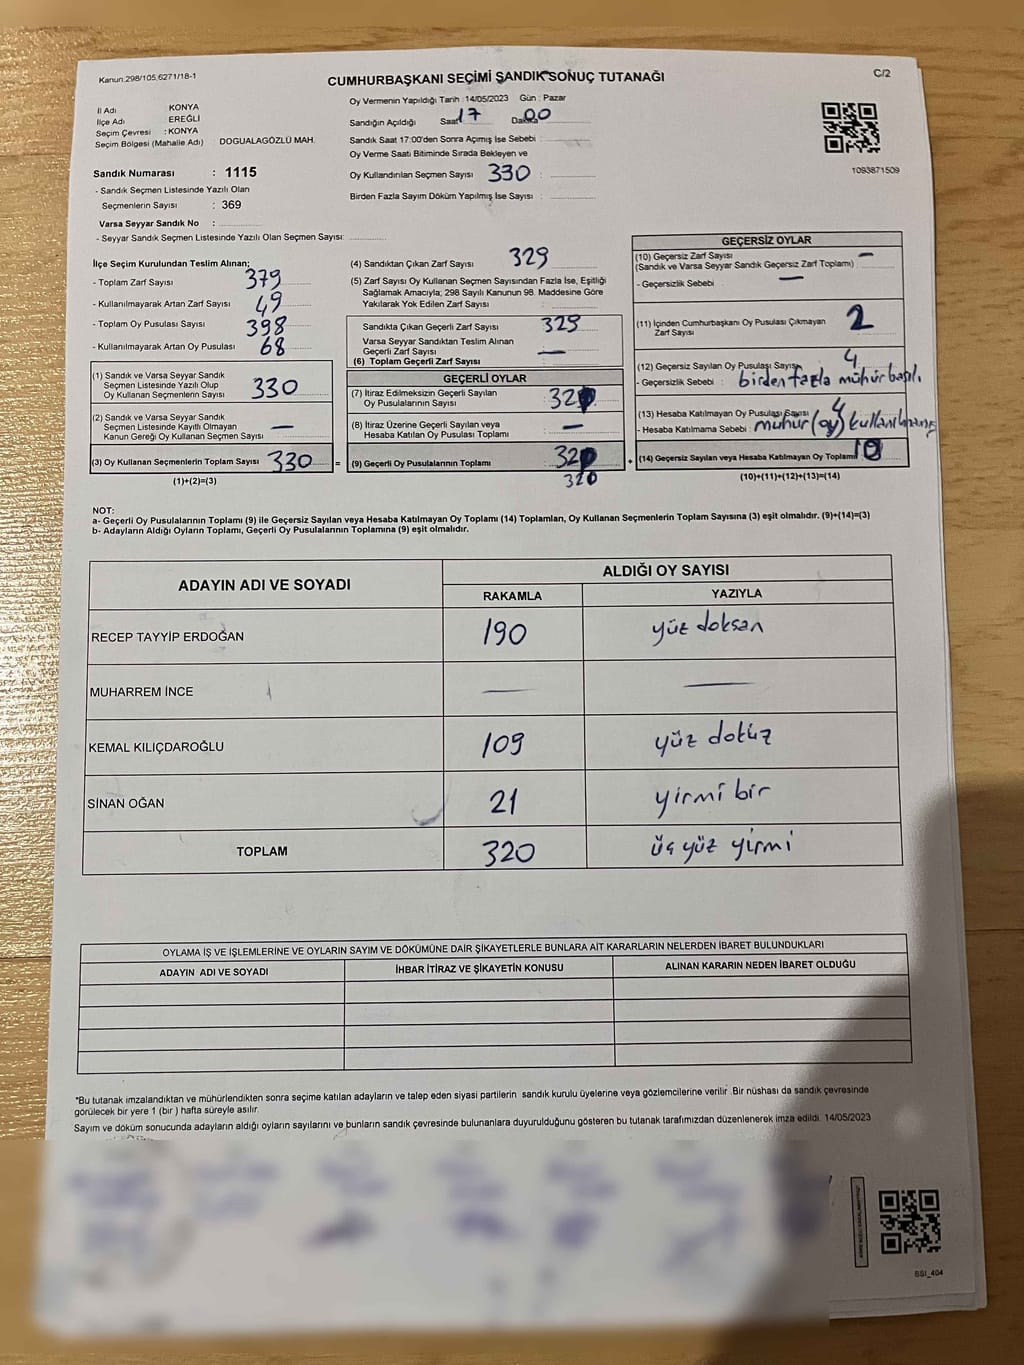 Kanun:298/105,6271/18-1
CUMHURBAŞKANI SEÇİMİ SANDIK SONUÇ TUTANAĞI
C/2
İl Adı KONYA
İlçe Adı EREĞLİ
Seçim Çevresi : KONYA
Seçim Bölgesi (Mahalle Adı) DOGUALAGÖZLÜ MAH.
Sandık Numarası : 1115
- Sandık Seçmen Listesinde Yazılı Olan
Seçmenlerin Sayısı : 369
Varsa Seyyar Sandık No :
- Seyyar Sandık Seçmen Listesinde Yazılı Olan Seçmen Sayısı:
Oy Vermenin Yapıldığı Tarih : 14/05/2023 Gün : Pazar
Sandığın Açıldığı Saat 17 Dakika 00
Sandık Saat 17:00'den Sonra Açımış İse Sebebi :
Oy Verme Saati Bitiminde Sırada Bekleyen ve
Oy Kullandırılan Seçmen Sayısı 330 :
Birden Fazla Sayım Döküm Yapılmış İse Sayısı :
1093871509
İlçe Seçim Kurulundan Teslim Alınan;
- Toplam Zarf Sayısı 379
- Kullanılmayarak Artan Zarf Sayısı 49
- Toplam Oy Pusulası Sayısı 398
- Kullanılmayarak Artan Oy Pusulası 68
(1) Sandık ve Varsa Seyyar Sandık
Seçmen Listesinde Yazılı Olup
Oy Kullanan Seçmenlerin Sayısı 330
(2) Sandık ve Varsa Seyyar Sandık
Seçmen Listesinde Kayıtlı Olmayan
Kanun Gereği Oy Kullanan Seçmen Sayısı —
(3) Oy Kullanan Seçmenlerin Toplam Sayısı 330 =
(1)+(2)=(3)
(4) Sandıktan Çıkan Zarf Sayısı 329
(5) Zarf Sayısı Oy Kullanan Seçmen Sayısından Fazla İse, Eşitliği
Sağlamak Amacıyla; 298 Sayılı Kanunun 98. Maddesine Göre
Yakılarak Yok Edilen Zarf Sayısı :
Sandıkta Çıkan Geçerli Zarf Sayısı 329
Varsa Seyyar Sandıktan Teslim Alınan
Geçerli Zarf Sayısı —
(6) Toplam Geçerli Zarf Sayısı
GEÇERLİ OYLAR
(7) İtiraz Edilmeksizin Geçerli Sayılan
Oy Pusulalarının Sayısı 320
(8) İtiraz Üzerine Geçerli Sayılan veya
Hesaba Katılan Oy Pusulası Toplamı —
(9) Geçerli Oy Pusulalarının Toplamı 320 +
320
GEÇERSİZ OYLAR
(10) Geçersiz Zarf Sayısı —
(Sandık ve Varsa Seyyar Sandık Geçersiz Zarf Toplamı) :
- Geçersizlik Sebebi : —
(11) İçinden Cumhurbaşkanı Oy Pusulası Çıkmayan
Zarf Sayısı 2
(12) Geçersiz Sayılan Oy Pusulası Sayısı 4
- Geçersizlik Sebebi : birden fazla mühür basılı
(13) Hesaba Katılmayan Oy Pusulası Sayısı 4
- Hesaba Katılmama Sebebi : mühür (oy) kullanılmamış
(14) Geçersiz Sayılan veya Hesaba Katılmayan Oy Toplamı 10
(10)+(11)+(12)+(13)=(14)
NOT:
a- Geçerli Oy Pusulalarının Toplamı (9) ile Geçersiz Sayılan veya Hesaba Katılmayan Oy Toplamı (14) Toplamları, Oy Kullanan Seçmenlerin Toplam Sayısına (3) eşit olmalıdır. (9)+(14)=(3)
b- Adayların Aldığı Oyların Toplamı, Geçerli Oy Pusulalarının Toplamına (9) eşit olmalıdır.
ADAYIN ADI VE SOYADI
ALDIĞI OY SAYISI
RAKAMLA YAZIYLA
RECEP TAYYİP ERDOĞAN 190 yüz doksan
MUHARREM İNCE — —
KEMAL KILIÇDAROĞLU 109 yüz dokuz
SİNAN OĞAN 21 yirmi bir
TOPLAM 320 üç yüz yirmi
OYLAMA İŞ VE İŞLEMLERİNE VE OYLARIN SAYIM VE DÖKÜMÜNE DAİR ŞİKAYETLERLE BUNLARA AİT KARARLARIN NELERDEN İBARET BULUNDUKLARI
ADAYIN ADI VE SOYADI İHBAR İTİRAZ VE ŞİKAYETİN KONUSU ALINAN KARARIN NEDEN İBARET OLDUĞU
*Bu tutanak imzalandıktan ve mühürlendikten sonra seçime katılan adayların ve talep eden siyasi partilerin sandık kurulu üyelerine veya gözlemcilerine verilir. Bir nüshası da sandık çevresinde
görülecek bir yere 1 (bir) hafta süreyle asılır.
Sayım ve döküm sonucunda adayların aldığı oyların sayılarını ve bunların sandık çevresinde bulunanlara duyurulduğunu gösteren bu tutanak tarafımızdan düzenlenerek imza edildi. 14/05/2023
BSI_404